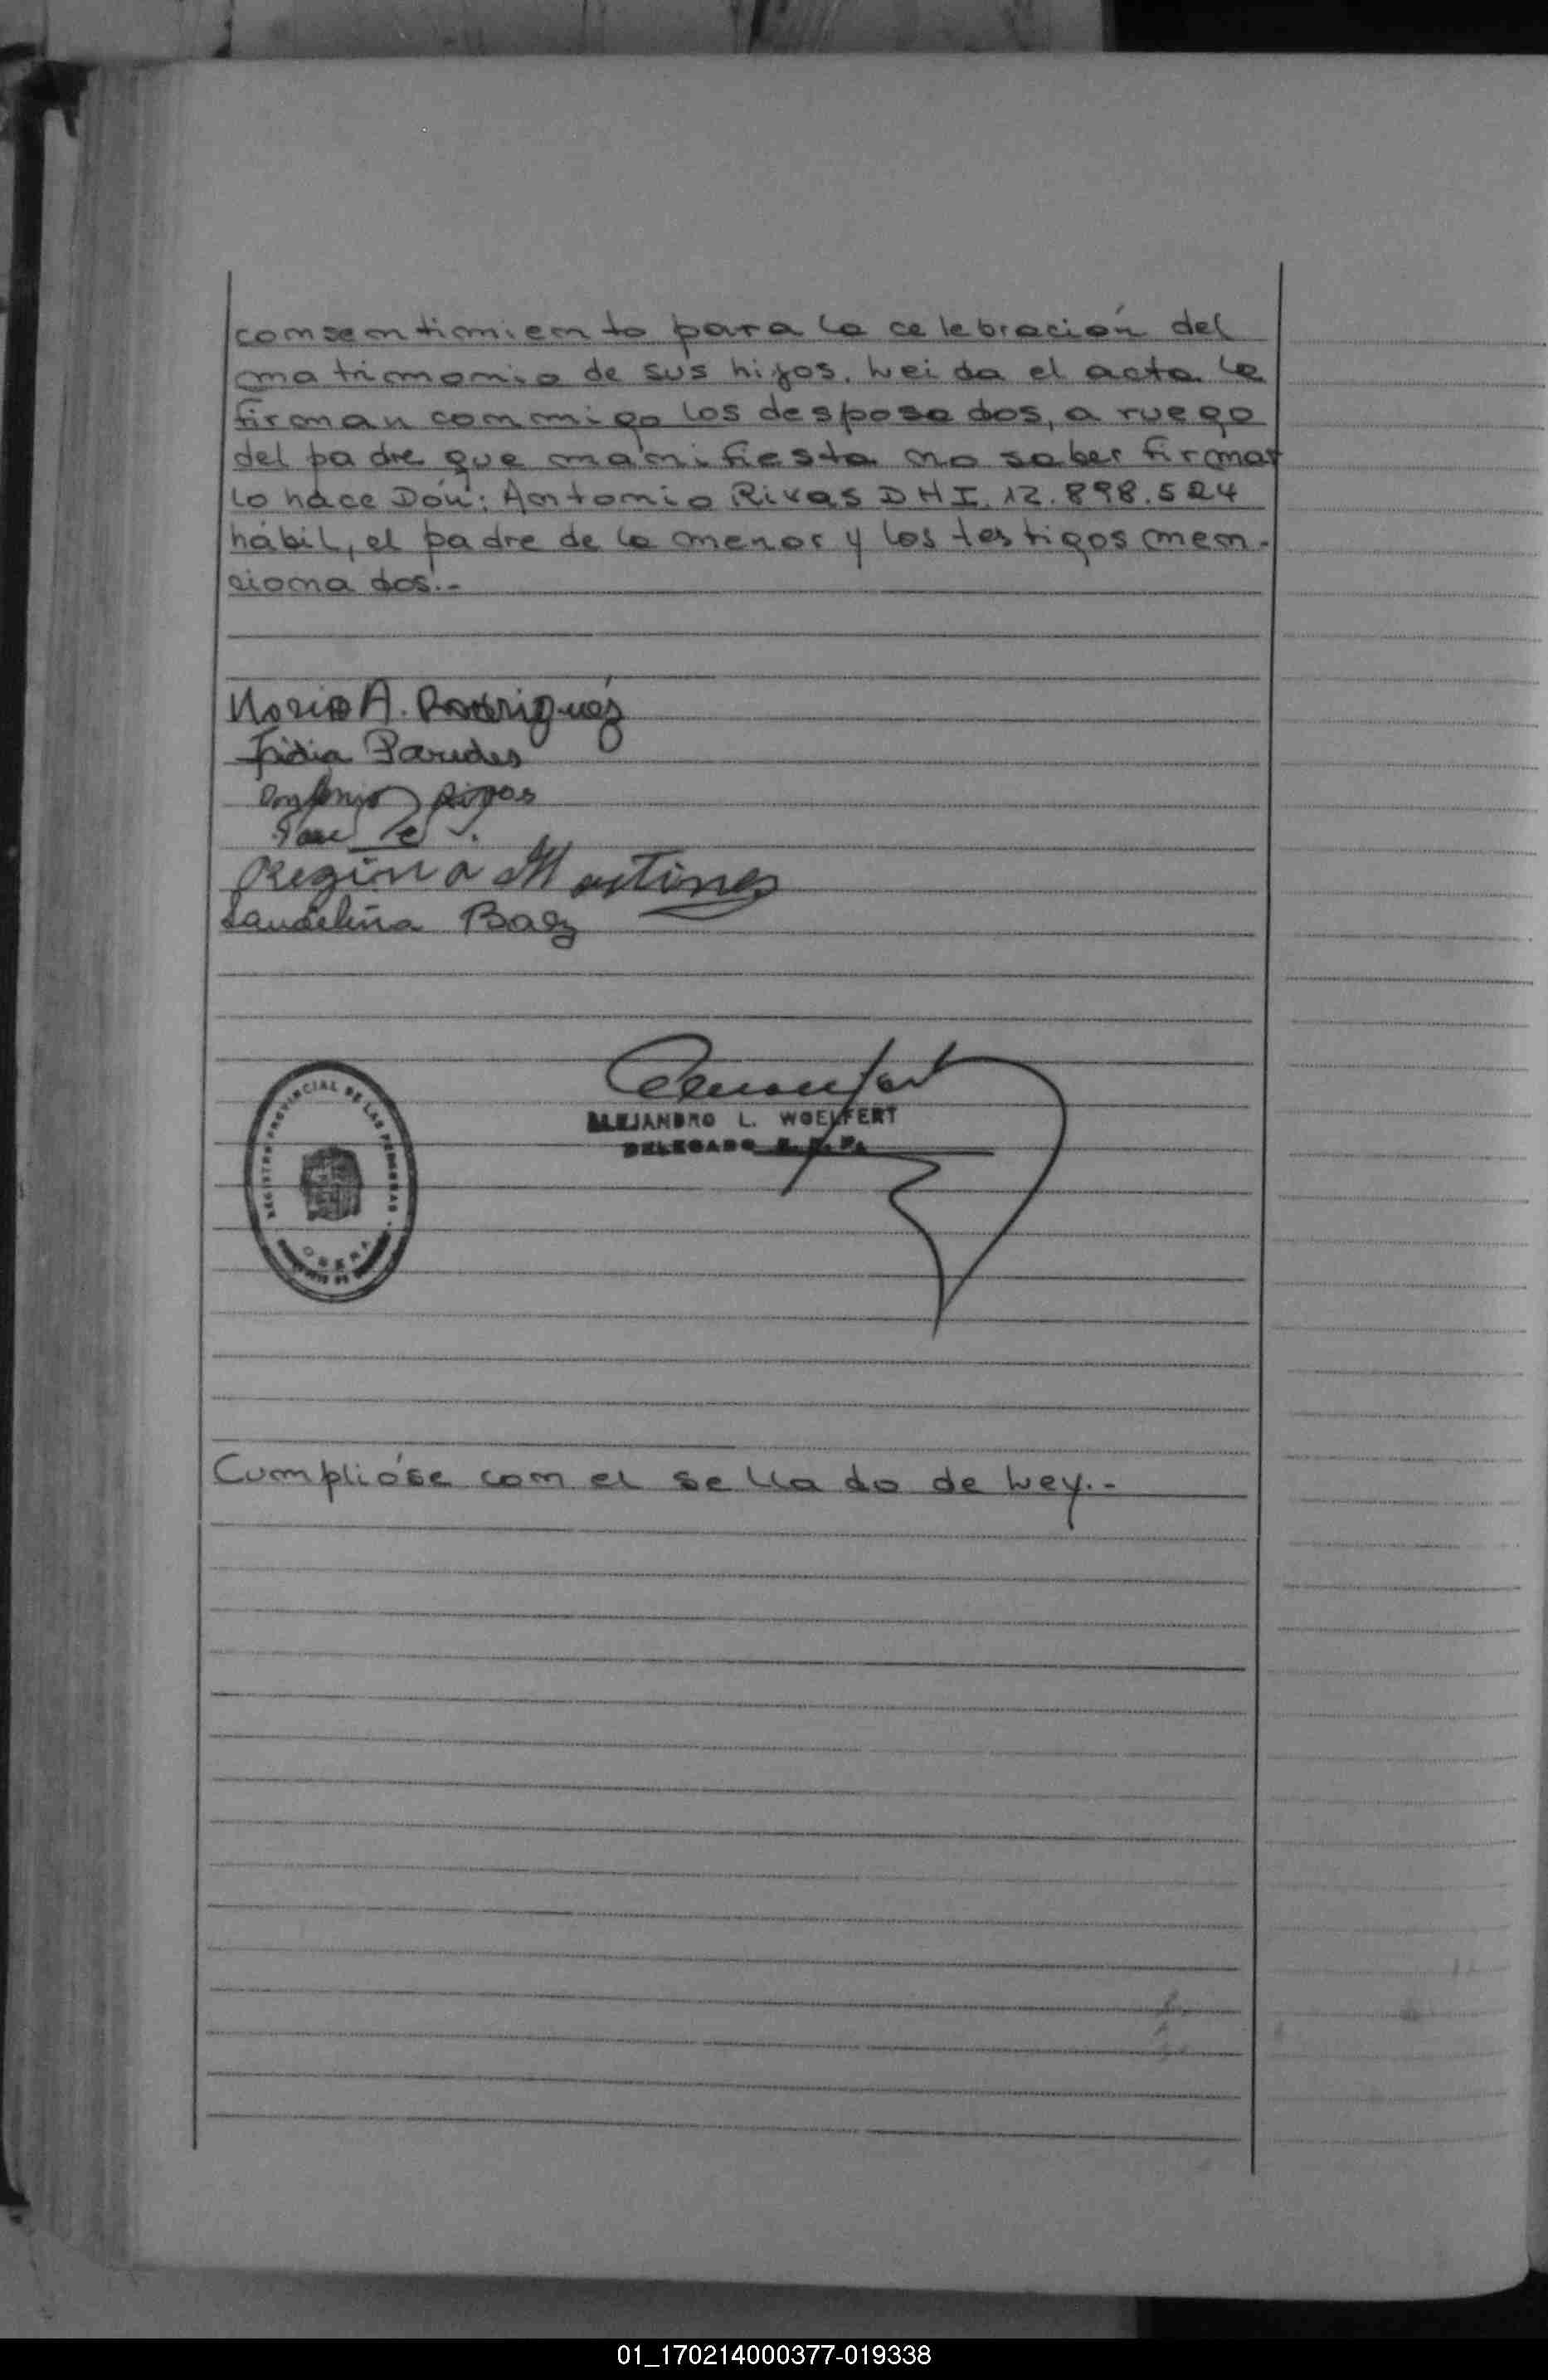 consentimiento para la celebración del
matrimonio de sus hijos. Leida el acta la
firman conmigo los desposados, a ruego
del padre que manifiesta no saber firmar
lo hace Don: Antonio Rivas D N I. 12.898.524
hábil, el padre de la menor y los testigos men-
cionados.-
Mario A. Rodriguéz
Paredes
Antonio Rivas
Jose
Regina Martines
Laudelina Baez
ALEJANDRO L. WOELFERT
DELEGADO R. P. P.
REGISTRO PROVINCIAL DE LAS PERSONAS
OBERA
Cumplióse con el sellado de Ley.-
01_170214000377-019338